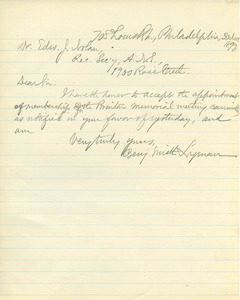 708 Locust St., Philadelphia,
Dr. Edw. J. Nolan,
Rec. Sec'y, A.N.S.
1900 Race Street.
Dear Sir:
I have the honor to accept the appointment
of membership of the Memorial meeting
as notified in your favor of yesterday, and
am
Very truly yours,
Benj. Smith Lyman.